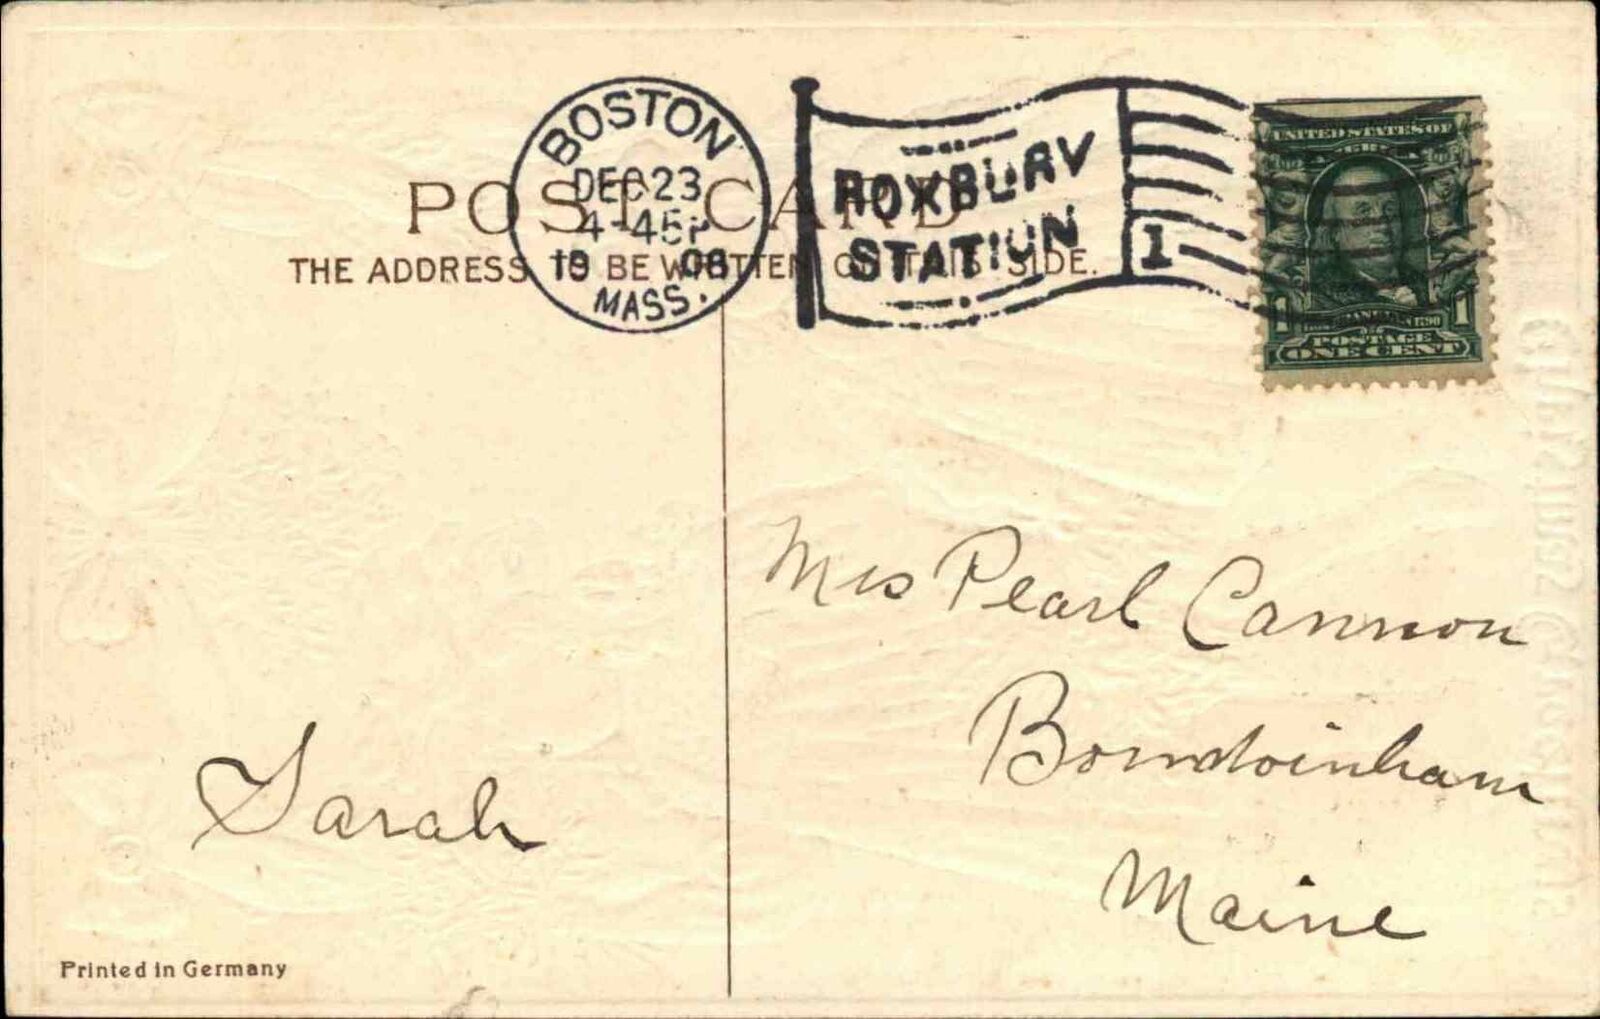 POST CARD
THE ADDRESS TO BE WRITTEN ON THIS SIDE.
BOSTON
DEC 23
4-45P
1908
MASS.
ROXBURY
STATION
1
UNITED STATES OF
AMERICA
1 FRANKLIN 1
POSTAGE
ONE CENT
Mrs Pearl Cannon
Bowdoinham
Maine
Sarah
Printed in Germany